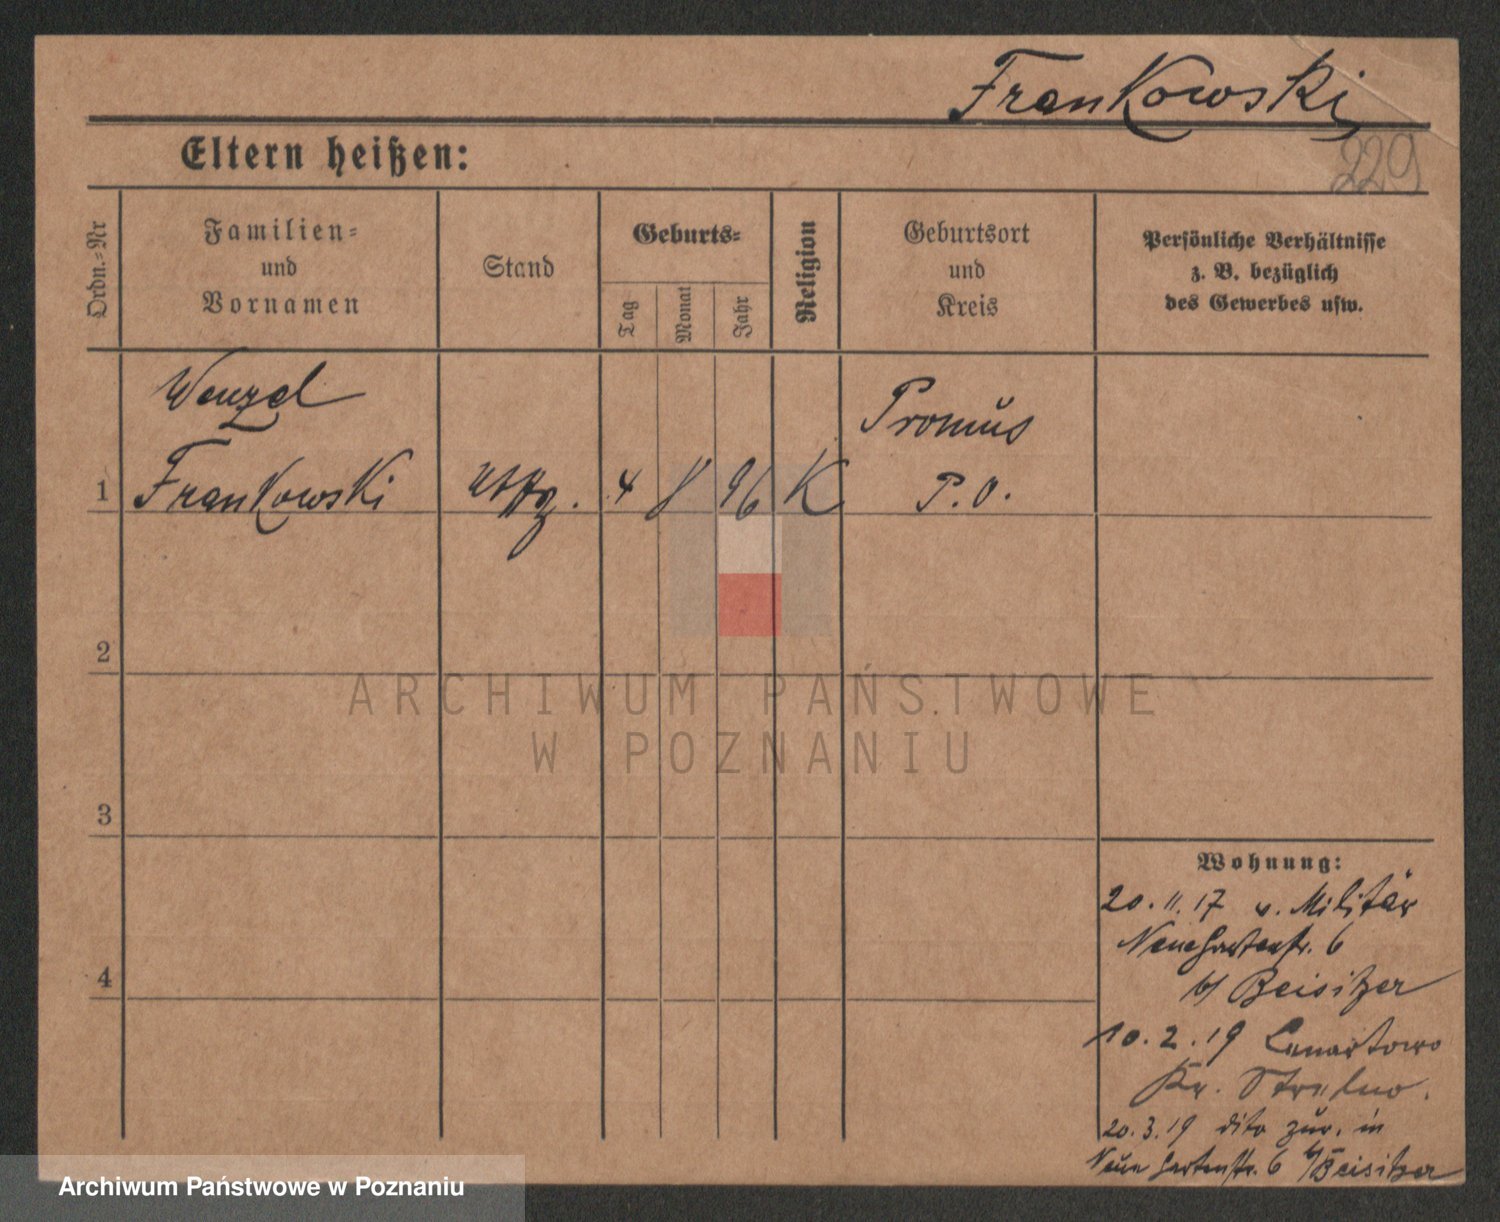 Frankowski
229
Eltern heißen:
Ordn.=Nr
Familien=
und
Vornamen
Stand
Geburts=
Tag
Monat
Jahr
Religion
Geburtsort
und
Kreis
Persönliche Verhältnisse
z. B. bezüglich
des Gewerbes usw.
Wenzel
Promus
1 Frankowski 4 8 96 K P.O.
2
3
4
ARCHIWUM PAŃSTWOWE
W POZNANIU
Wohnung:
20.11.17 v. Militär
Neue Gartenstr. 6
b/ Beisitzer
10.2.19 Lenartowo
Kr. Strelno.
20.3.19 dito zur. in
Neue Gartenstr. 6 b/ Beisitzer
Archiwum Państwowe w Poznaniu